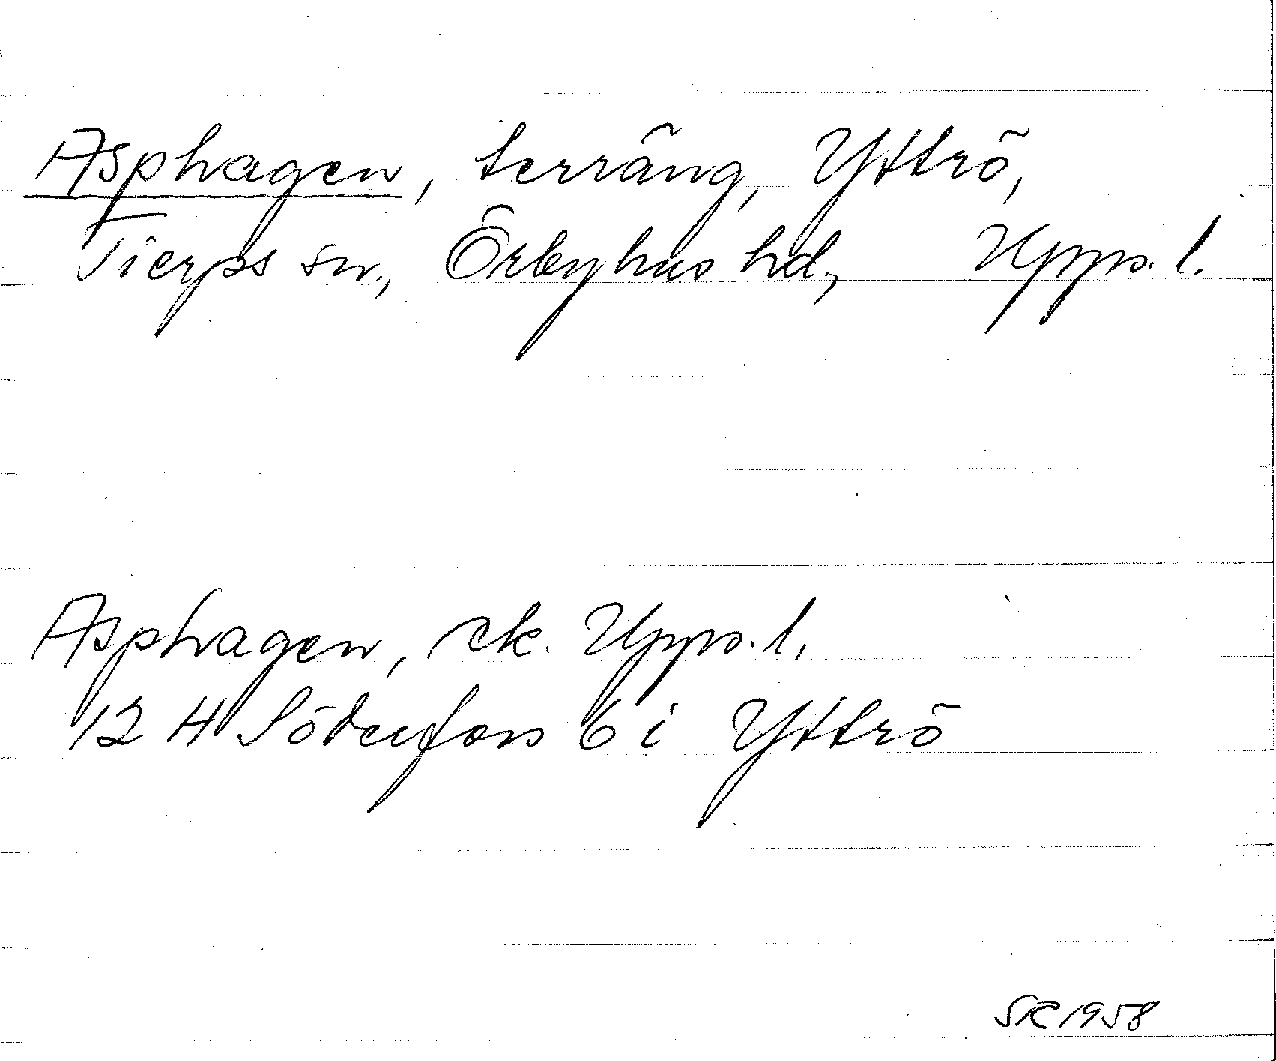 Asphagen, terräng, Yttrö,
Tierps sn., Örbyhus hd, Upps. l.
Asphagen, ek. Upps. l.
12 H Söderfors 6 i Yttrö
SR 1958